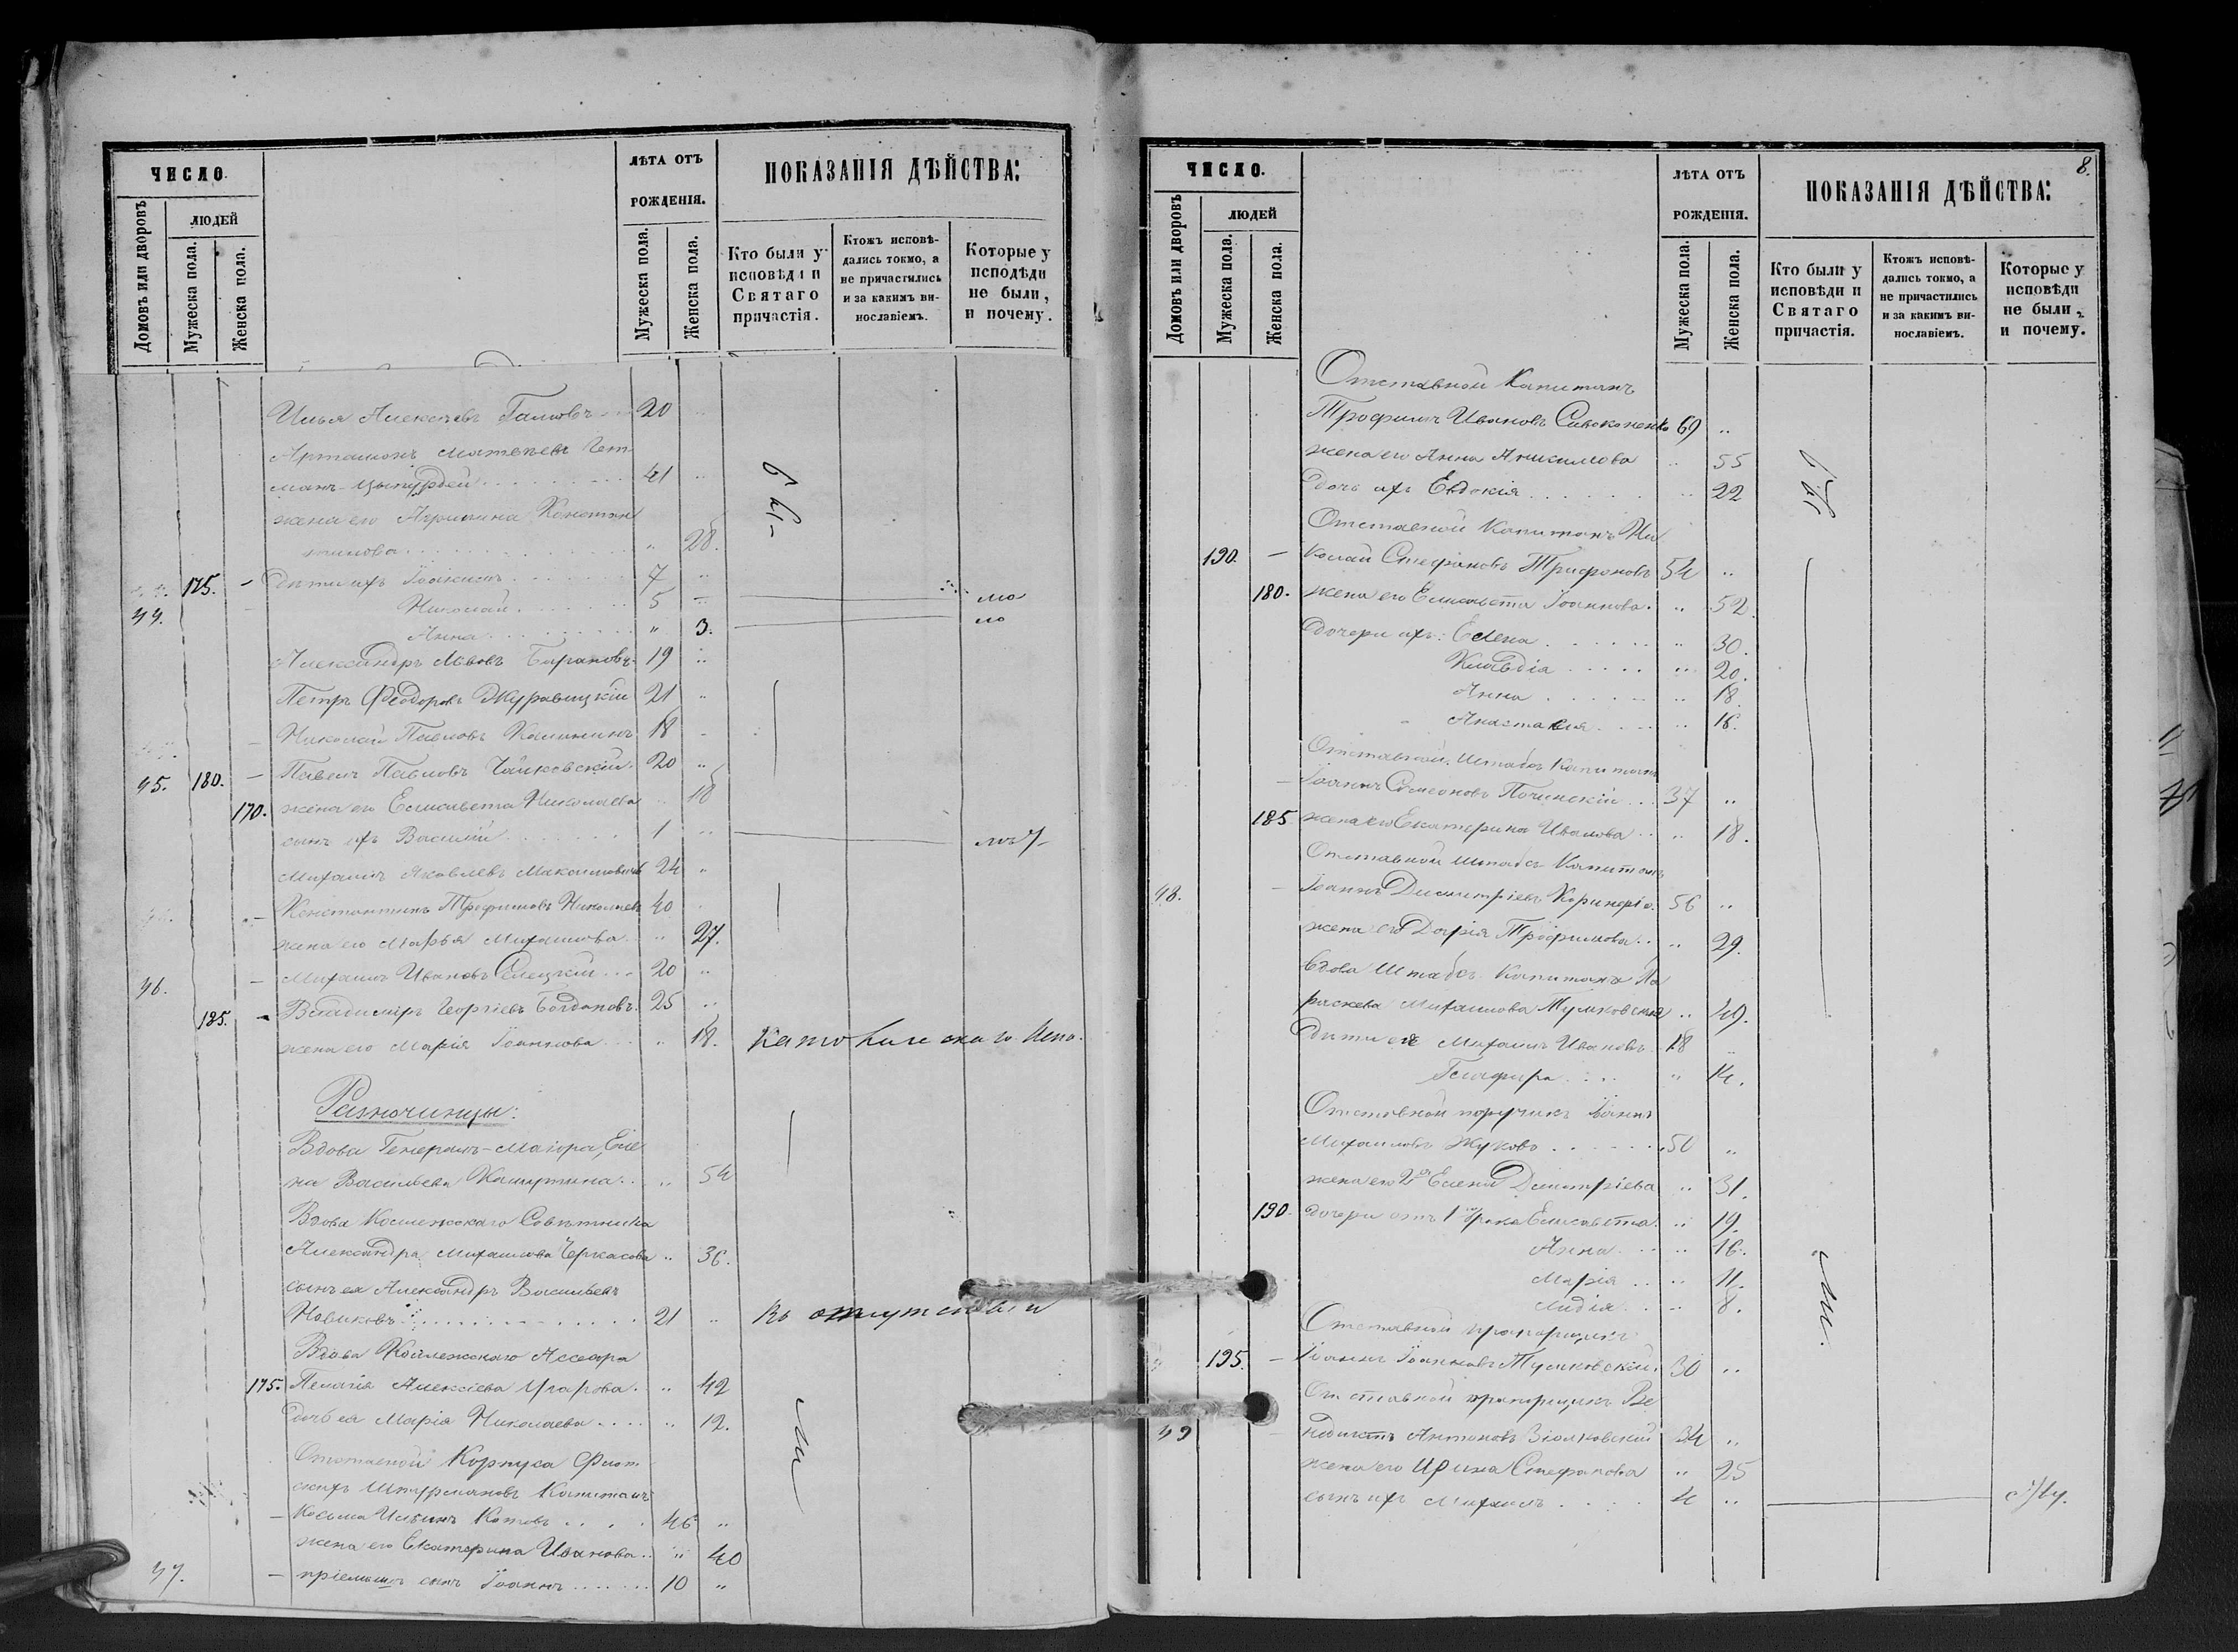 ЧИСЛО.
ЛѢТА ОТЪ РОЖДЕНІЯ.
ПОКАЗАНІЯ ДѢЙСТВА:
Домовъ или дворовъ
ЛЮДЕЙ
Мужеска пола.
Женска пола.
Мужеска пола.
Женска пола.
Кто были у исповѣди и Святаго причастія.
Ктожъ исповѣдались токмо, а не причастились и за какимъ винословіемъ.
Которые у исповѣди не были, и почему.
Илья Алексѣевъ 20 "
Артамонъ Матвѣевъ Гет
манъ- 41 "
жена его Констан
тинова " 28.
175. – Дѣти ихъ Іоакимъ 7 "
44. Николай 5 "
Анна " 3.
Александръ Львовъ Барановъ 19 "
Петръ Ѳеодоровъ Журавицкій 21 "
– Николай Павловъ Калининъ 18 "
45. 180. – Павелъ Павловъ Чайковскій 20 "
170. жена его Елисавета Николаева " 18
сынъ ихъ Василій 1 "
Михаилъ Яковлевъ Максимовичъ 24 "
– Константинъ Трофимовъ Николаевъ 40 "
жена его Марья Михаилова " 27.
46. – Михаилъ Ивановъ Слецкій 20 "
185. – Владиміръ Георгіевъ Богдановъ 25 "
жена его Марія Іоаннова " 18. Католическаго Испо.
Разночинцы:
Вдова Генералъ-Маіора, Еле
на Васильева " 54
Вдова Коллежскаго Совѣтника
Александра Михаилова Черкасова " 36.
сынъ ея Александръ Васильевъ
Новиковъ 21 " Въ отсутствіи
Вдова Коллежскаго Ассесора
175. Пелагія Алексіева Угарова " 42
Дочь ея Марія Николаева " 12.
Отставной Корпуса Флот
скихъ Штурмановъ Капитанъ
– Косьма Ильинъ Котовъ 46 "
жена его Екатерина Иванова " 40
47. – пріемышъ сынъ Іоаннъ 10 "
8.
ЧИСЛО.
ЛѢТА ОТЪ РОЖДЕНІЯ.
ПОКАЗАНІЯ ДѢЙСТВА:
Домовъ или дворовъ
ЛЮДЕЙ
Мужеска пола.
Женска пола.
Мужеска пола.
Женска пола.
Кто были у исповѣди и Святаго причастія.
Ктожъ исповѣдались токмо, а не причастились и за какимъ винословіемъ.
Которые у исповѣди не были, и почему.
Отставной Капитанъ
Трофимъ Ивановъ Сивоконенко 69 "
жена его Анна Анисимова " 55
Дочь ихъ Евдокія " 22
Отставной Капитанъ Ни
190. – колай Стефановъ Трифоновъ 54 "
180. жена его Елисавета Іоаннова " 52.
Дочери ихъ: Елена " 30.
Клавдія " 20.
Анна " 18.
Анастасія " 16.
Отставной Штабсъ Капитанъ
– Іоаннъ Симеоновъ Починскій 37 "
185 жена его Екатерина Иванова " 18.
Отставной Штабсъ Капитанъ
48. – Іоаннъ Димитріевъ 56 "
жена его Дарія Трофимова " 29.
Вдова Штабсъ Капитана Па
раскева Михаилова Тумковская " 49.
Дѣти ея Михаилъ Ивановъ 18 "
Глафира " 14.
Отставной поручикъ Іоаннъ
Михаиловъ Жуковъ 50 "
жена его 2я Елена Димитріева " 31.
190. дочери отъ 1 брака Елисавета " 19.
Анна " 16.
Марія " 11.
Лидія " 8.
Отставной прапорщикъ
195. – Іоаннъ Іоанновъ Тумковскій 30 "
Отставной прапорщикъ Ве
49 недиктъ Антоновъ Зіолковскій 34 "
жена его Ирина Стефанова " 25
сынъ ихъ Михаилъ 4 "